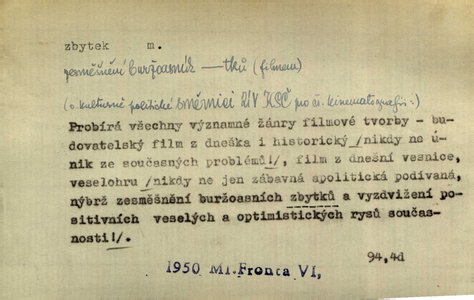 zbytek m.
zesměšnění buržoasních —tků (filmem)
(o kulturně politické směrnici ÚV KSČ pro čs. kinematografii:)
Probírá všechny významné žánry filmové tvorby - bu-
dovatelský film z dneška i historický /nikdy ne ú-
nik ze současných problémů!/, film z dnešní vesnice,
veselohru /nikdy ne jen zábavná apolitická podívaná,
nýbrž zesměšnění buržoasních zbytků a vyzdvižení po-
sitivních veselých a optimistických rysů součas-
nosti!/.
94,4d
1950 Ml.Fronta VI,